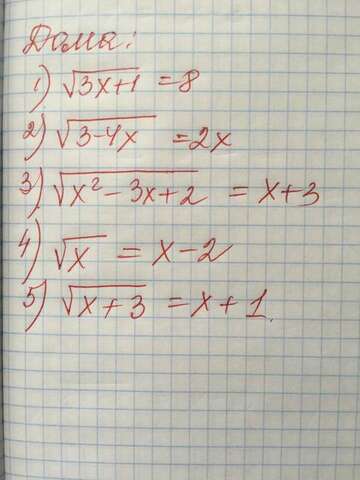 Дома:
1) √3x+1 = 8
2) √3-4x = 2x
3) √x²-3x+2 = x+3
4) √x = x-2
5) √x+3 = x+1.